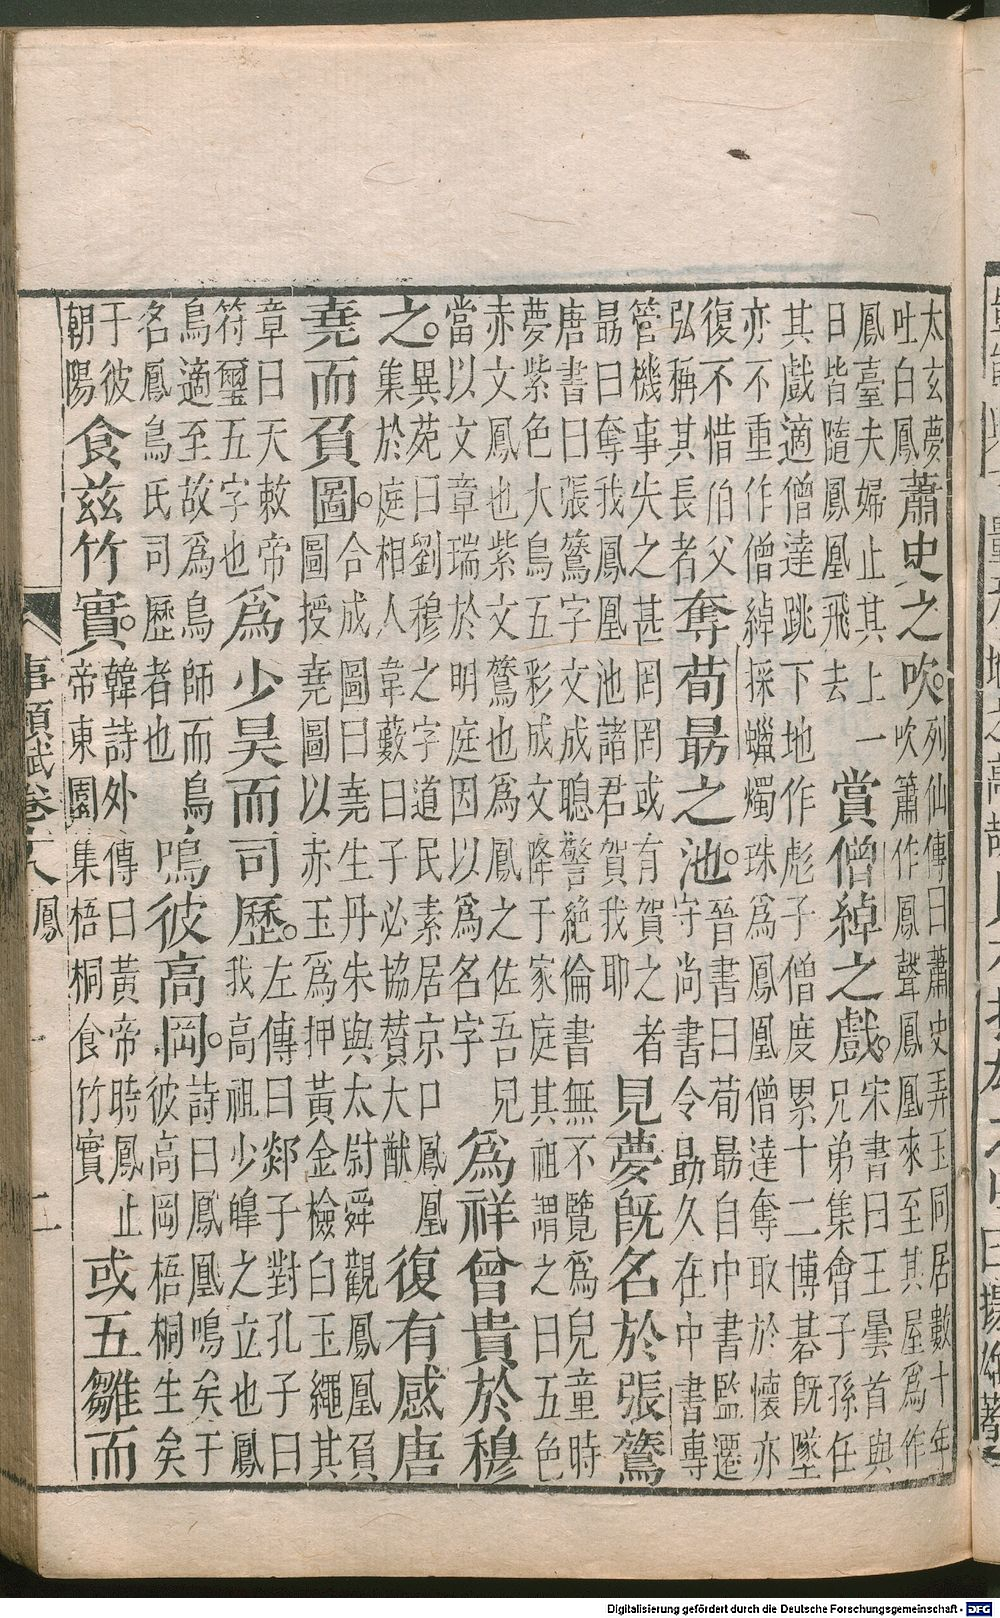 太玄夢吐白鳳蕭史之吹。列仙傳曰蕭史弄玉同居數十年吹簫作鳳聲鳳凰來至其屋爲作
鳳臺夫婦止其上一日皆隨鳳凰飛去賞僧綽之戲。宋書曰王曇首與兄弟集會子孫任
其戲適僧達跳下地作彪子僧度累十二博碁旣墜亦不重作僧綽採蠟燭珠爲鳳凰僧達奪取於懷亦
復不惜伯父弘稱其長者奪荀勗之池。晉書曰荀勗自中書監遷守尚書令勗久在中書專
管機事失之甚罔罔或有賀之者勗曰奪我鳳凰池諸君賀我耶見夢旣名於張鷟
唐書曰張鷟字文成聰警絶倫書無不覽爲兒童時夢紫色大鳥五彩成文降于家庭其祖謂之曰五色
赤文鳳也紫文鷟也爲鳳之佐吾兒當以文章瑞於明庭因以爲名字爲祥曾貴於穆
之。異苑曰劉穆之字道民素居京口鳳凰集於庭相人韋藪曰子必協贊大猷復有感唐
堯而負圖。合成圖曰堯生丹朱與太尉舜觀鳳凰負圖授堯圖以赤玉爲押黃金檢白玉繩其
章曰天敕帝符璽五字也爲少昊而司歷。左傳曰郯子對孔子曰我高祖少皥之立也鳳
鳥適至故爲鳥師而鳥名鳳鳥氏司歷者也鳴彼高岡。詩曰鳳凰鳴矣于彼高岡梧桐生矣
于彼朝陽食茲竹實。韓詩外傳曰黃帝時鳳止帝東園集梧桐食竹實或五雛而
事類賦卷十八 鳳
Digitalisierung gefördert durch die Deutsche Forschungsgemeinschaft - DFG